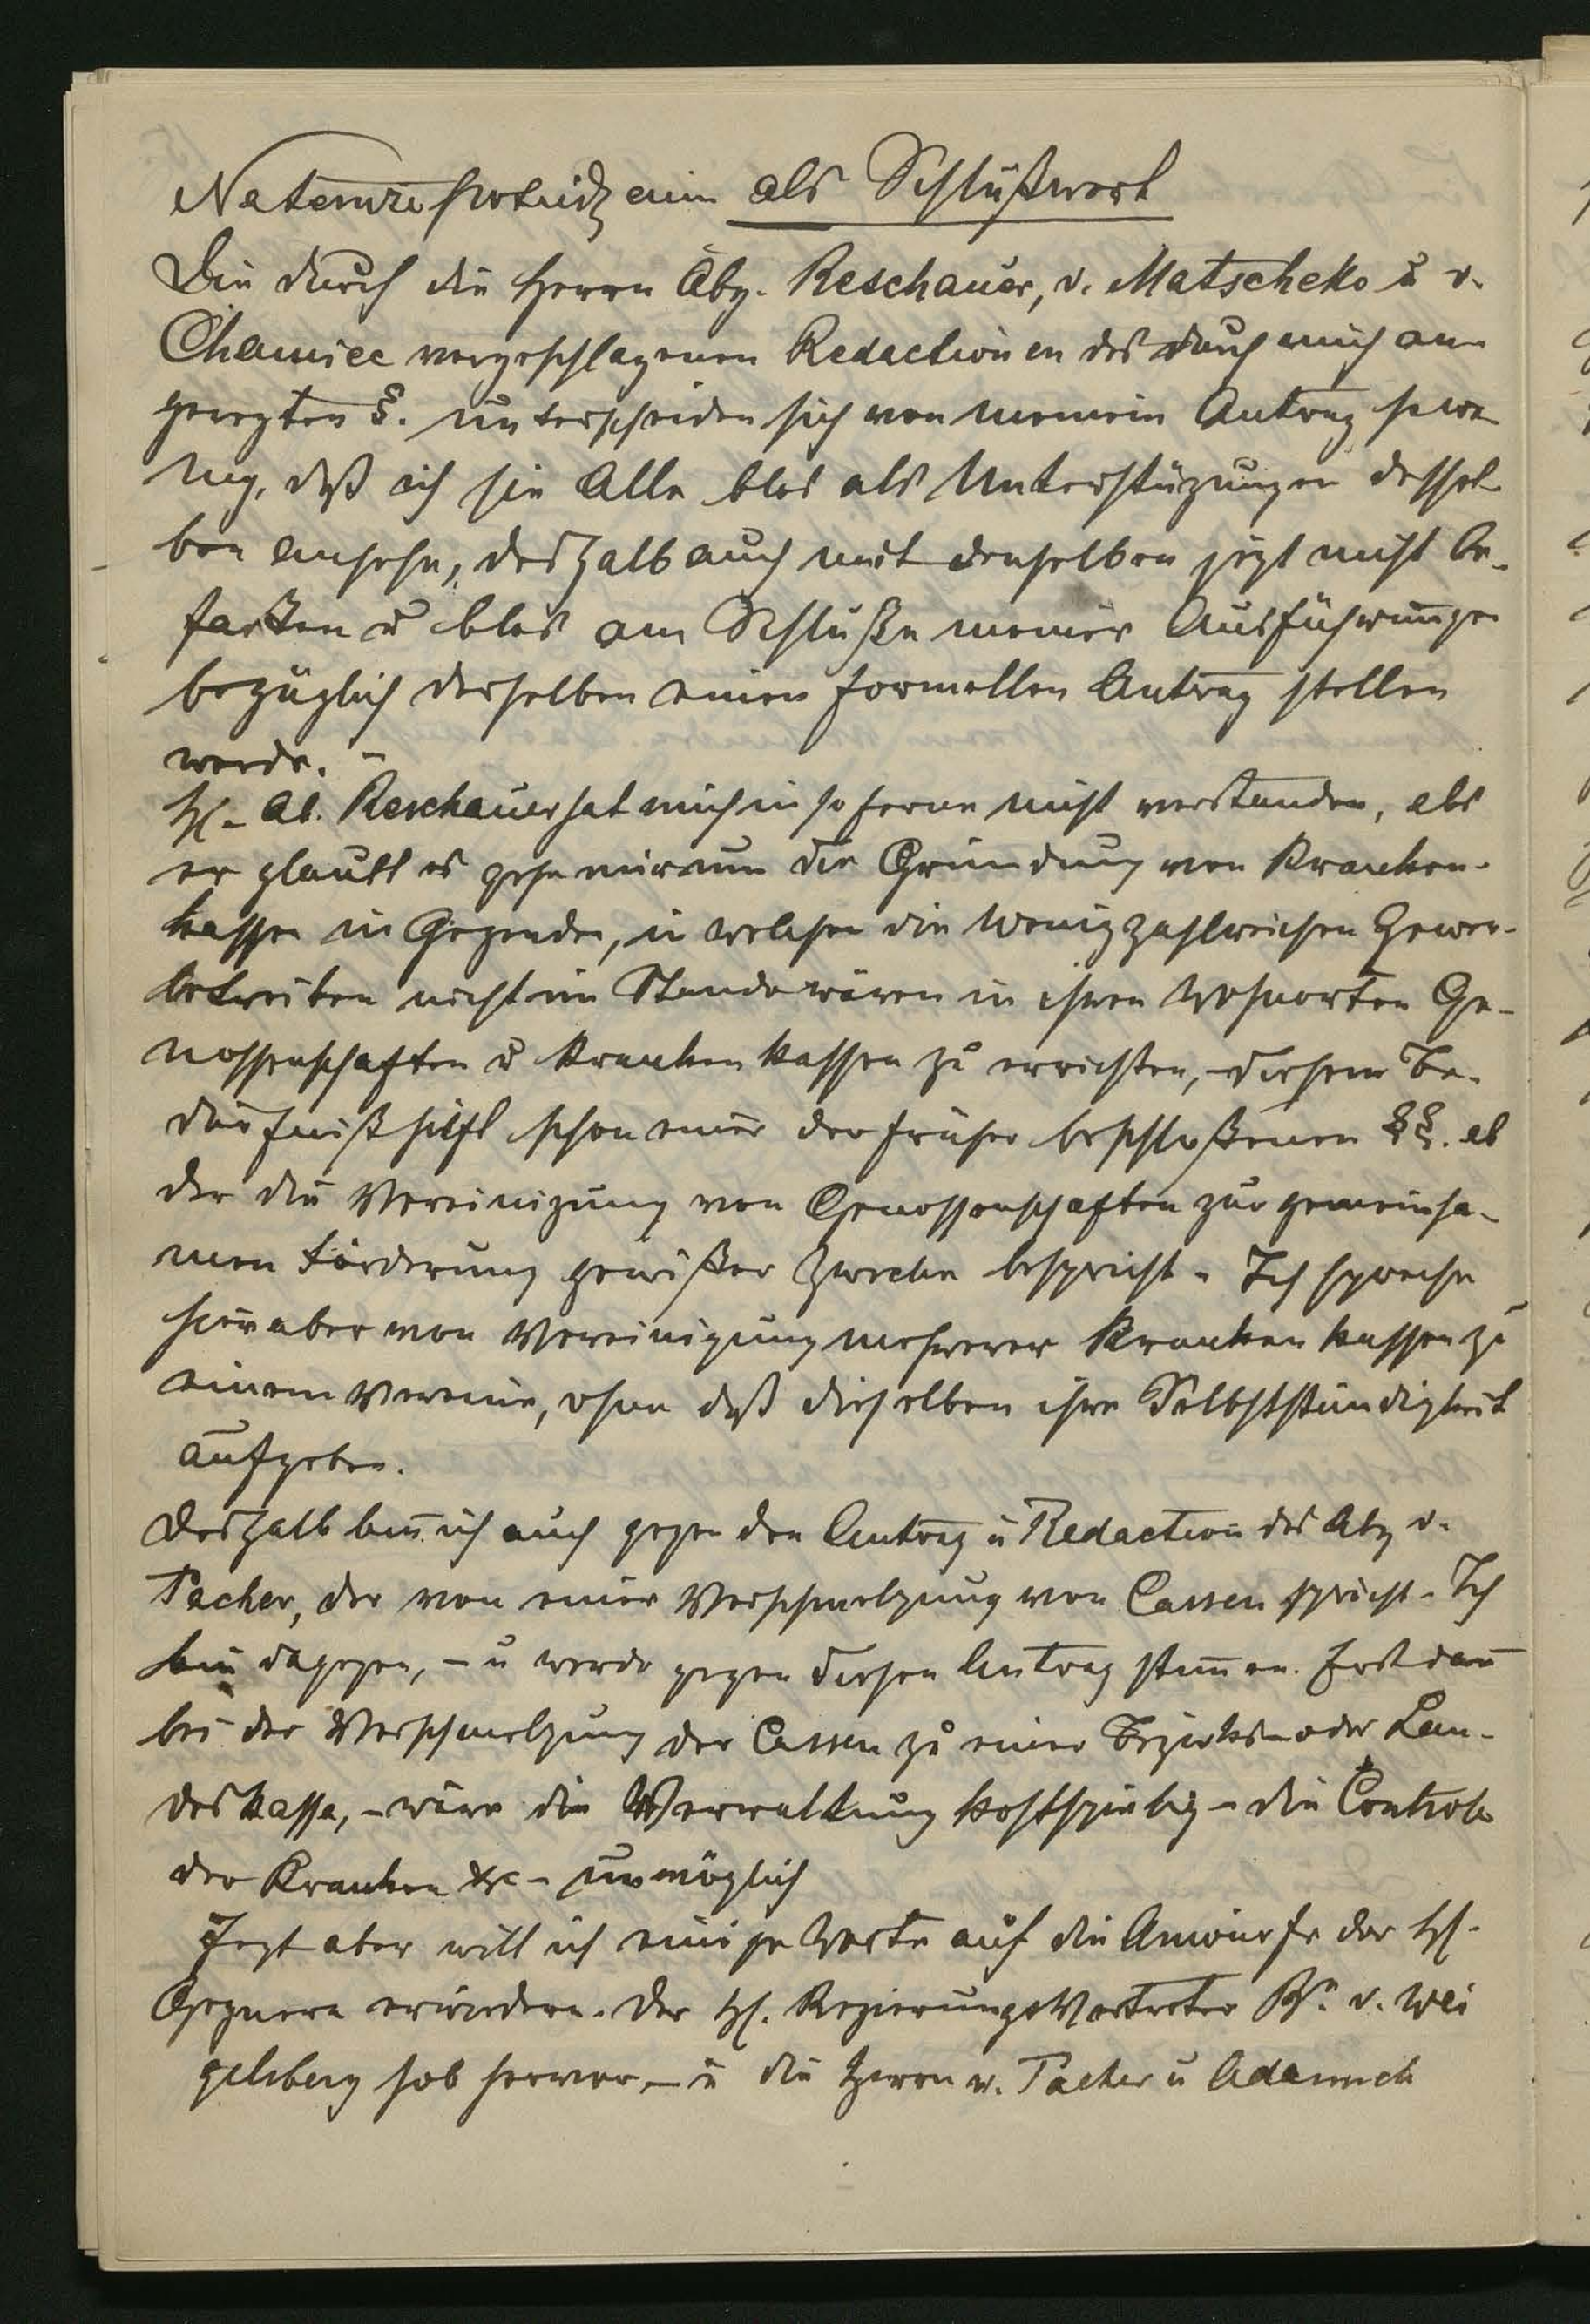 als Schlußwort
Die durch die Herrn Abg. Reschauer, v. Matscheko u v.
Chamiec vorgeschlagenen Redactionen des durch mich an
geregten §. unterscheiden sich von meinem Antrag so we-
nig, daß ich sie Alle blos als Unterstüzungen dessel-
ben ansehe, deshalb auch mit denselben jezt nicht be-
faßen u blos am Schluße meiner Ausführungen
bezüglich derselben einen formellen Antrag stellen
werde. –
H. Ab. Reschauer hat mich in so ferne nicht verstanden, als
er glaubt es gehe mir um die Gründung von Kranken-
kassen in Gegenden, in welchen die wenig zahlreichen Gewer-
betreiben nicht im Stande wären in ihren Wohnorten Ge-
nossenschaften u Krankenkassen zu errichten, – diesem Be-
dürfniß hilft schon einer der früher beschloßenen §§. ab
der die Vereinigung von Genossenschaften zur gemeinsa-
men Förderung gewißer Zwecke bespricht – Ich spreche
hier aber von Vereinigung mehrerer Krankenkassen zu
einem Vereine, ohne daß dieselben ihre Selbstständigkeit
aufgeben.
Deshalb bin ich auch gegen den Antrag u Redaction des Abg v.
Pacher, der von einer Verschmelzung von Cassen spricht – Ich
bin dagegen, – u werde gegen diesen Antrag stimen. Erst dan
bei der Verschmelzung der Cassen zu einer Bezirks – oder Lan-
deskassa, – wäre die Verwaltung kostspielig – die Controle
der Kranken etc – unmöglich
Jezt aber will ich einige Worte auf die Anwürfe der H.
Gegnern erwiedern. Der H. Regierungs Vertreter Br. v. Wei
gelsberg hob hervor, – u die Herrn v. Pacher u Adamek